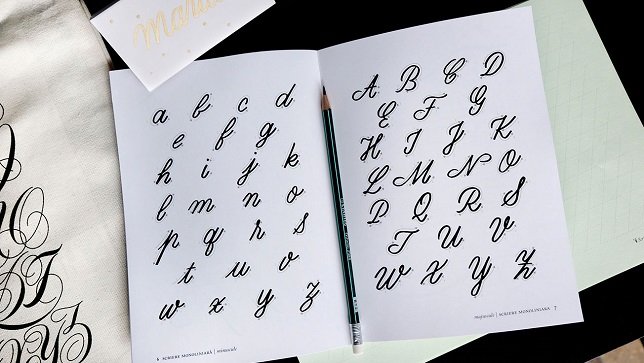 a b c d
e f g
h i j k
l m n o
p q r s
t u v
w x y z
6 SCRIERE MONOLINIARĂ | minuscule
A B C D
E F G
H I J K
L M N O
P Q R S
T U V
W X Y Z
majuscule | SCRIERE MONOLINIARĂ 7